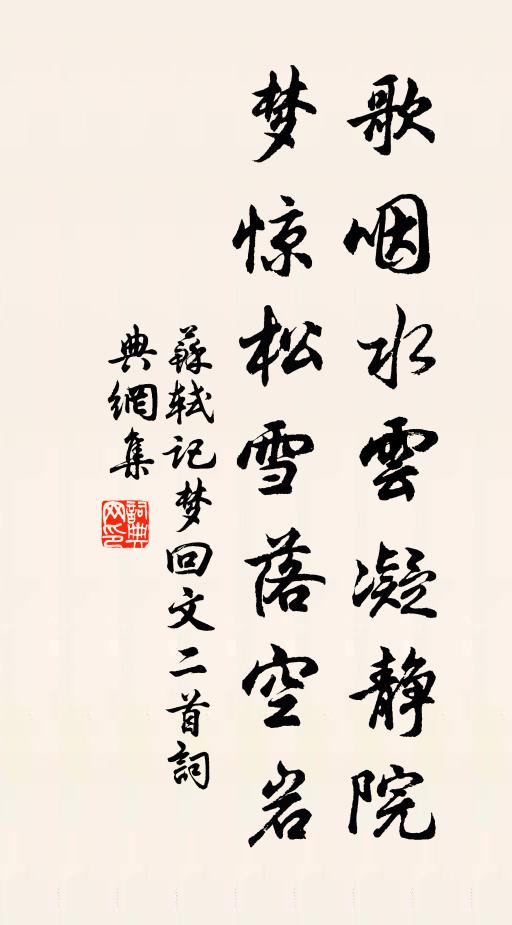 歌咽水雲凝静院
梦惊松雪落空岩
蘇轼记梦回文二首詞
典網集
詞典网印